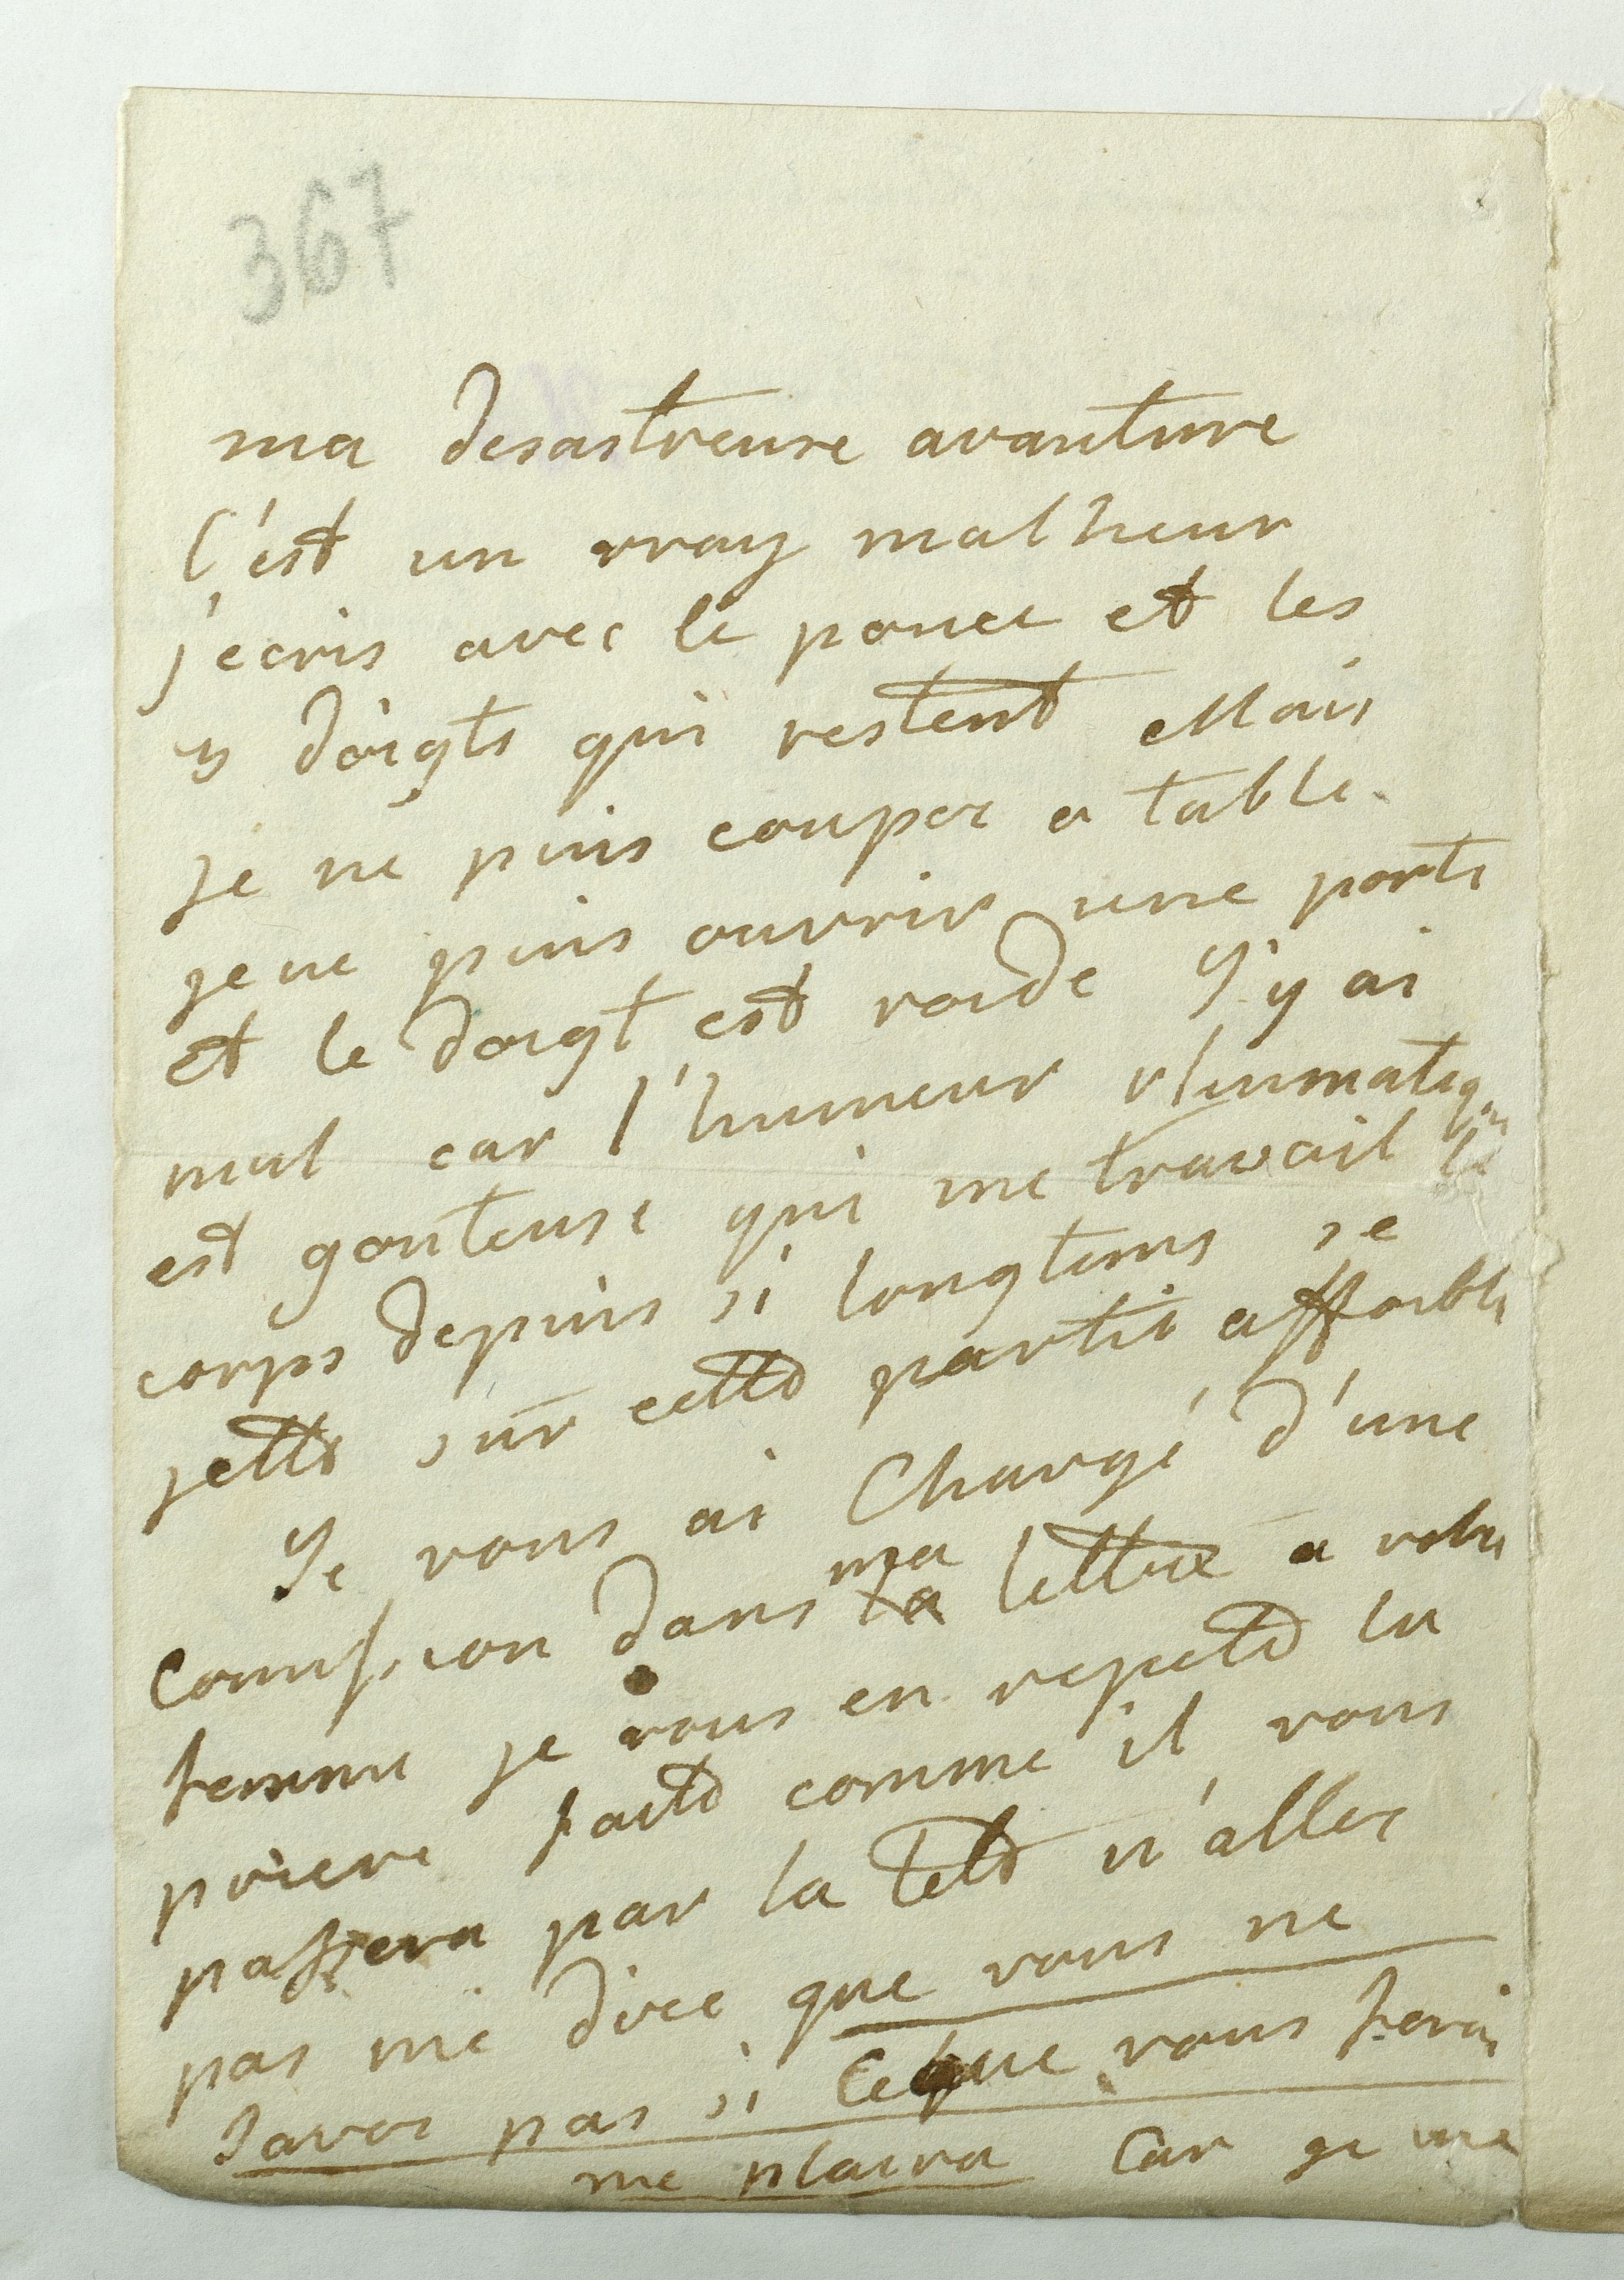 367
ma desastreuse avanture
C'est un vray malheur
j'ecris avec le pouce et les
3 doigts qui restent Mais
je ne puis couper a table.
je ne puis ouvrir une porte
et le doigt est roide J'y ai
mal car l'humeur rhumatiqu
est gouteuse qui me travail le
corps depuis si longtems se
jette sur cette partie affoibli
Je vous ai Chargé d'une
Comission dans ma la lettre a votre
femme je vous en repete la
priere faite comme il vous
passera par la tete n'allez
pas me dire que vous ne
savez pas si ce que vous ferai
me plaira Car je me